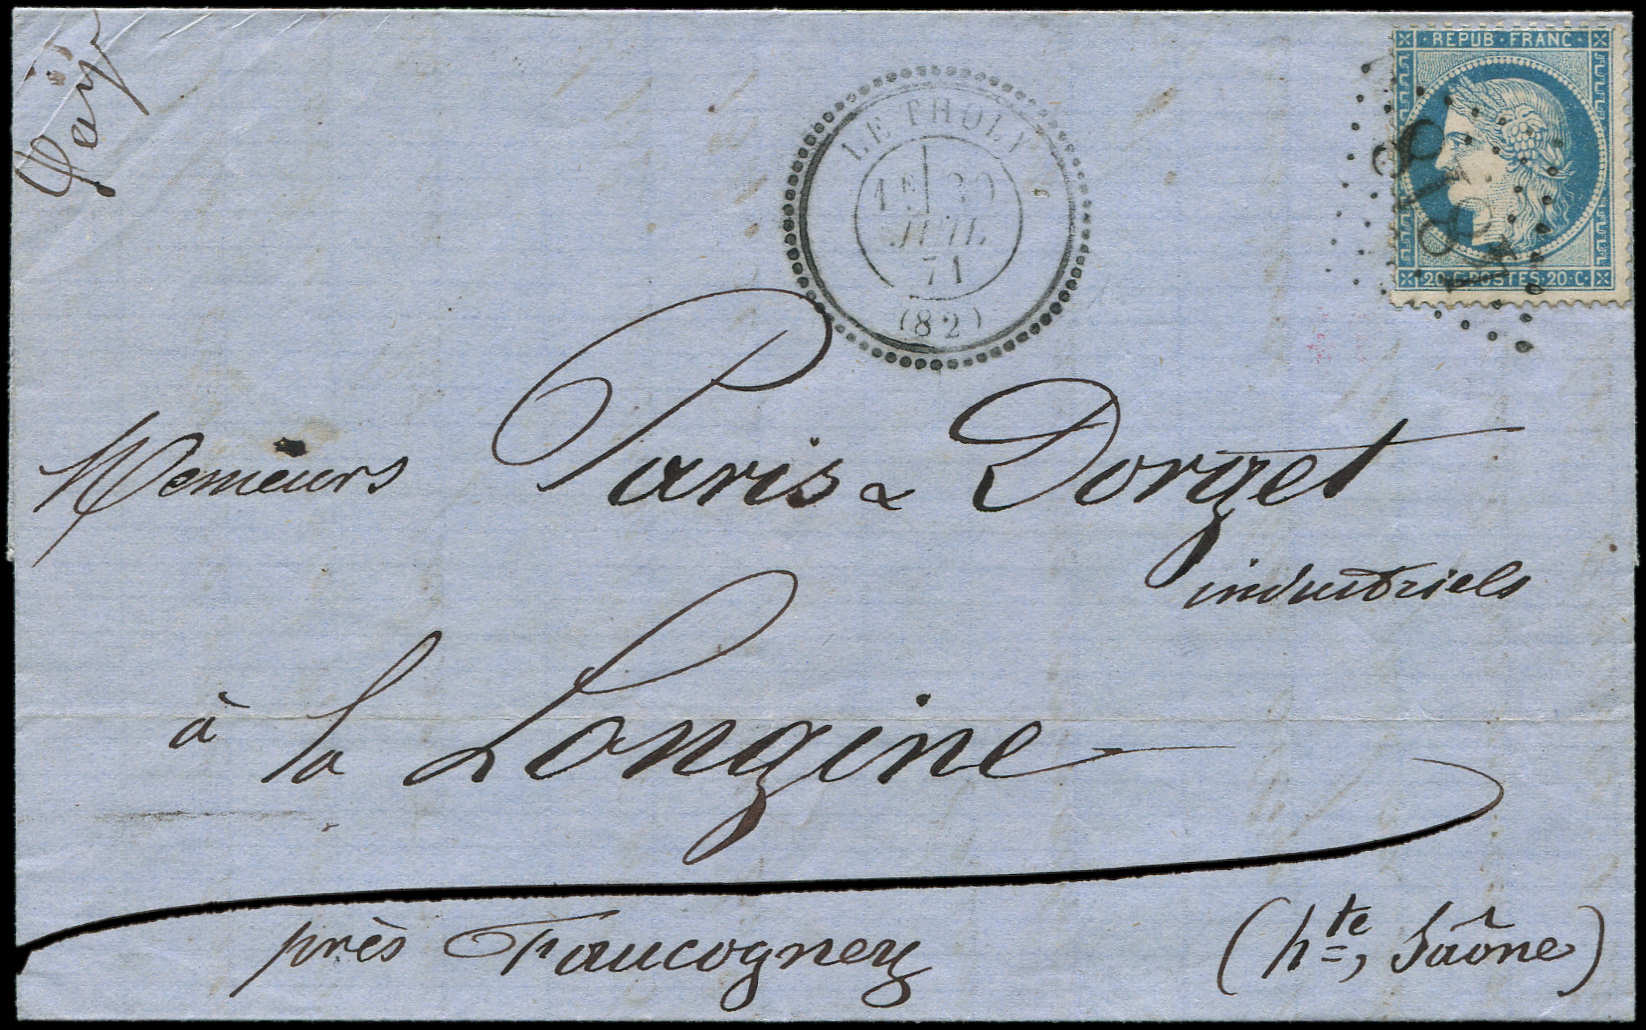 Payé
REPUB·FRANC·
20·C·POSTES·20·C·
LE THOLY
1E 20
JUIL.
71
(82)
Messieurs Paris & Dorget
industriels
à la Longine
près Faucogney (hte, Saône)